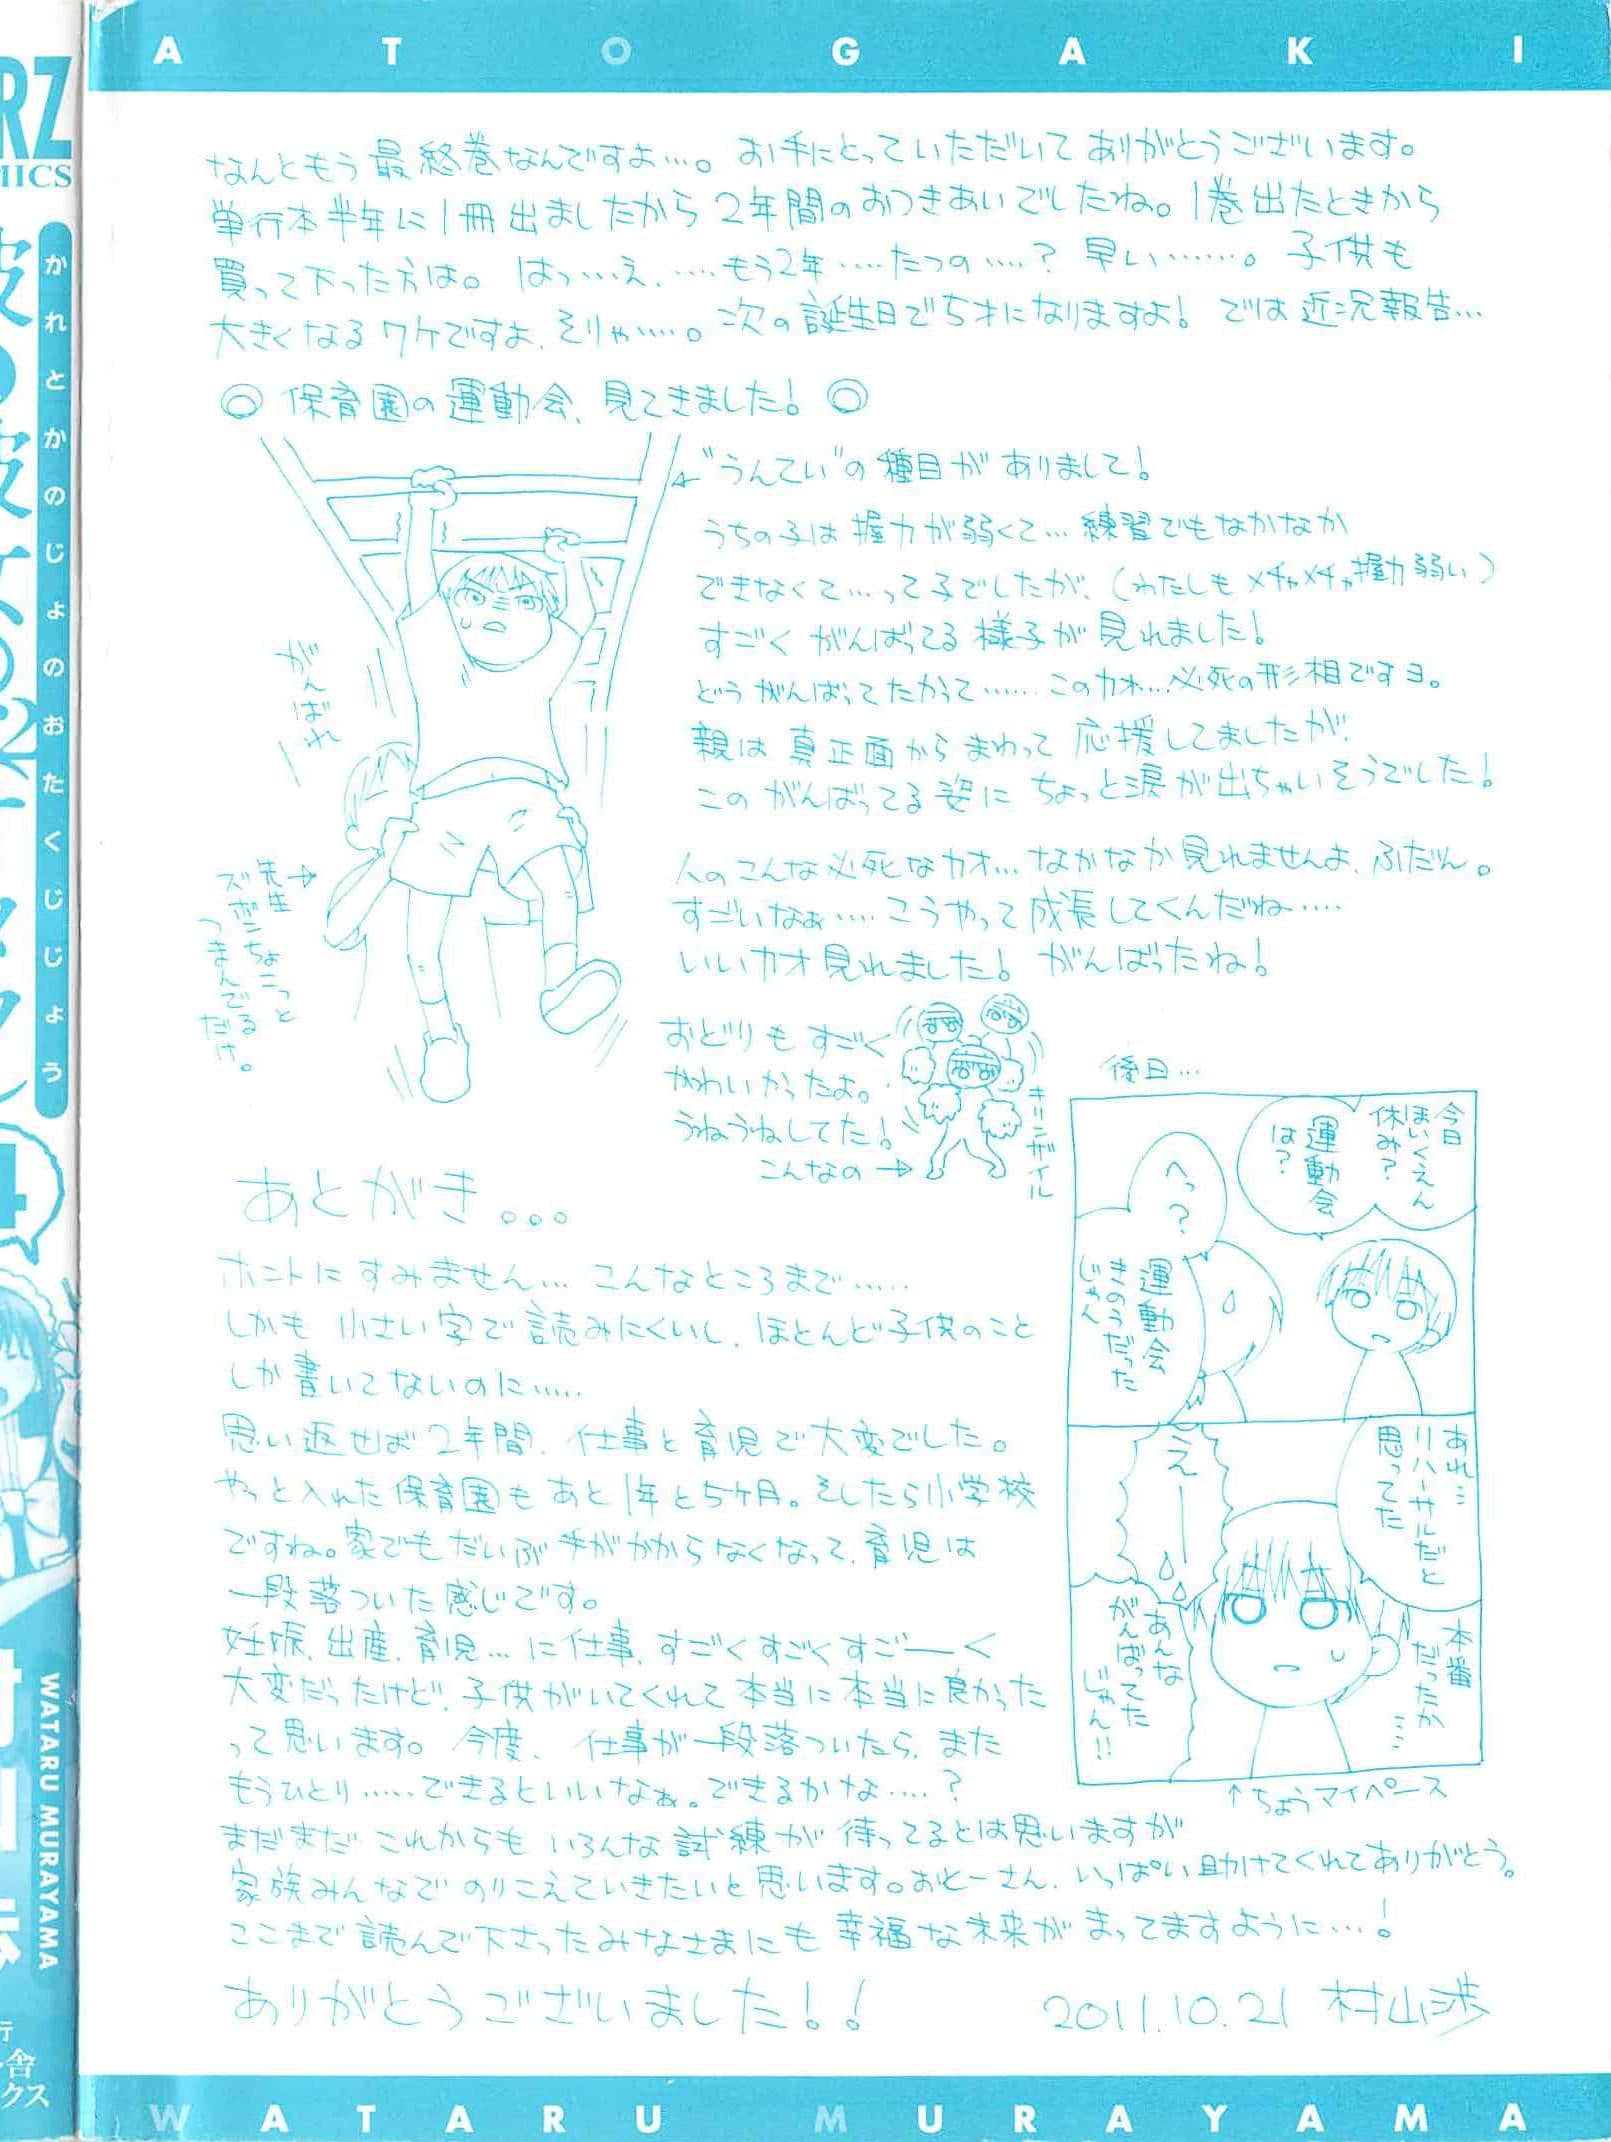 ATOGAKI
なんともう最終巻なんですよ…。お手にとっていただいてありがとうございます。
単行本半年に1冊出ましたから2年間のおつきあいでしたね。1巻出たときから
買って下った方は。はっ…え、……もう2年……たつの……？早い………。子供も
大きくなるワケですよ、そりゃ……。次の誕生日で5才になりますよ！では近況報告…
◎保育園の運動会、見てきました！◎
"うんてい"の種目がありまして！
うちの子は握力が弱くて…練習でもなかなか
できなくて…って子でしたが、(わたしもメチャメチャ握力弱い)
すごくがんばってる様子が見れました！
どうがんばってたかって……このカオ…必死の形相ですヨ。
親は真正面からまわって応援してましたが、
このがんばってる姿にちょっと涙が出ちゃいそうでした！
人のこんな必死なカオ…なかなか見れませんよ、ふだん。
すごいなぁ……こうやって成長してくんだね……
いいカオ見れました！がんばったね！
がんばれ
先生→
ズボンちょこっと
つまんでるだけ。
おどりもすごく
かわいかったよ。
うねうねしてた！
こんなの→
キリンザイル
後日…
今日
ほいくえん
休み？
運動会
は？
へっ？
運動会
きのうだった
じゃん
あれ…
リハーサルだと
思ってた
本番
だったか
……
えーー
あんな
がんばってた
じゃん!!
↑ちょうマイペース
あとがき...
ホントにすみません…こんなところまで……
しかも小さい字で読みにくいし、ほとんど子供のこと
しか書いてないのに……
思い返せば2年間、仕事と育児で大変でした。
やっと入れた保育園もあと1年と5ヶ月。そしたら小学校
ですね。家でもだいぶ手がかからなくなって、育児は
一段落ついた感じです。
妊娠、出産、育児…に仕事、すごくすごくすごーーく
大変だったけど、子供がいてくれて本当に本当に良かった
って思います。今度、仕事が一段落ついたら、また
もうひとり……できるといいなぁ。できるかな……？
まだまだこれからもいろんな試練が待ってるとは思いますが
家族みんなでのりこえていきたいと思います。おとーさん、いっぱい助けてくれてありがとう。
ここまで読んで下さったみなさまにも幸福な未来がまってますように…！
ありがとうございました！！
2011.10.21 村山渉
WATARU MURAYAMA
かれとかのじょのおたくじじょう
4
WATARU MURAYAMA